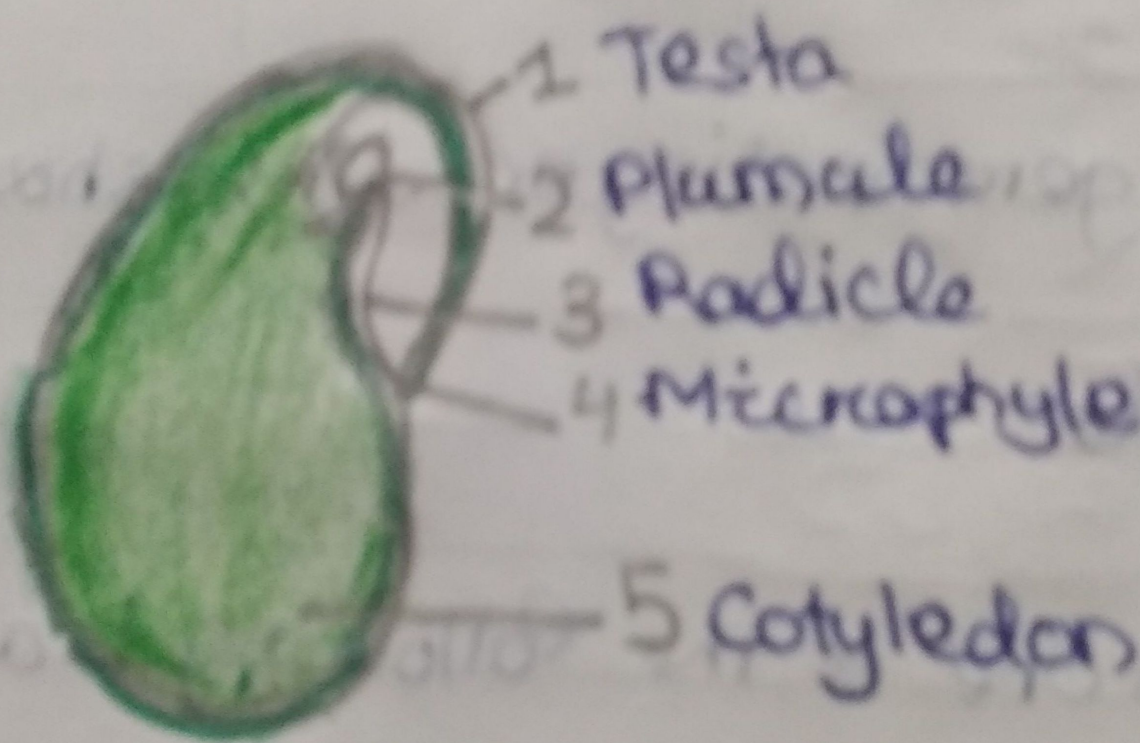 1 Testa
2 Plumule
3 Radicle
4 Microphyle
5 Cotyledon